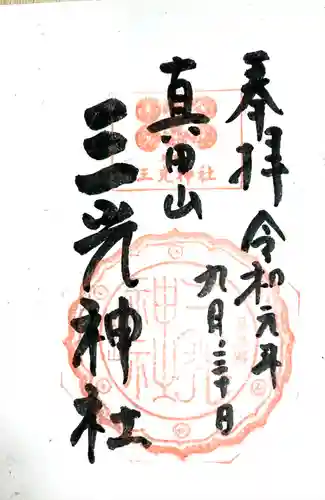 奉拝
令和元年
九月三十日
真田山
三光神社
三光神社